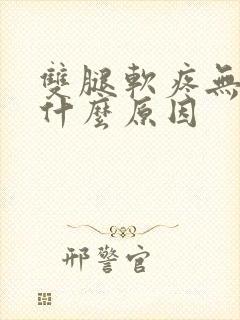 雙腿軟疼無
什麼原因
邢警官